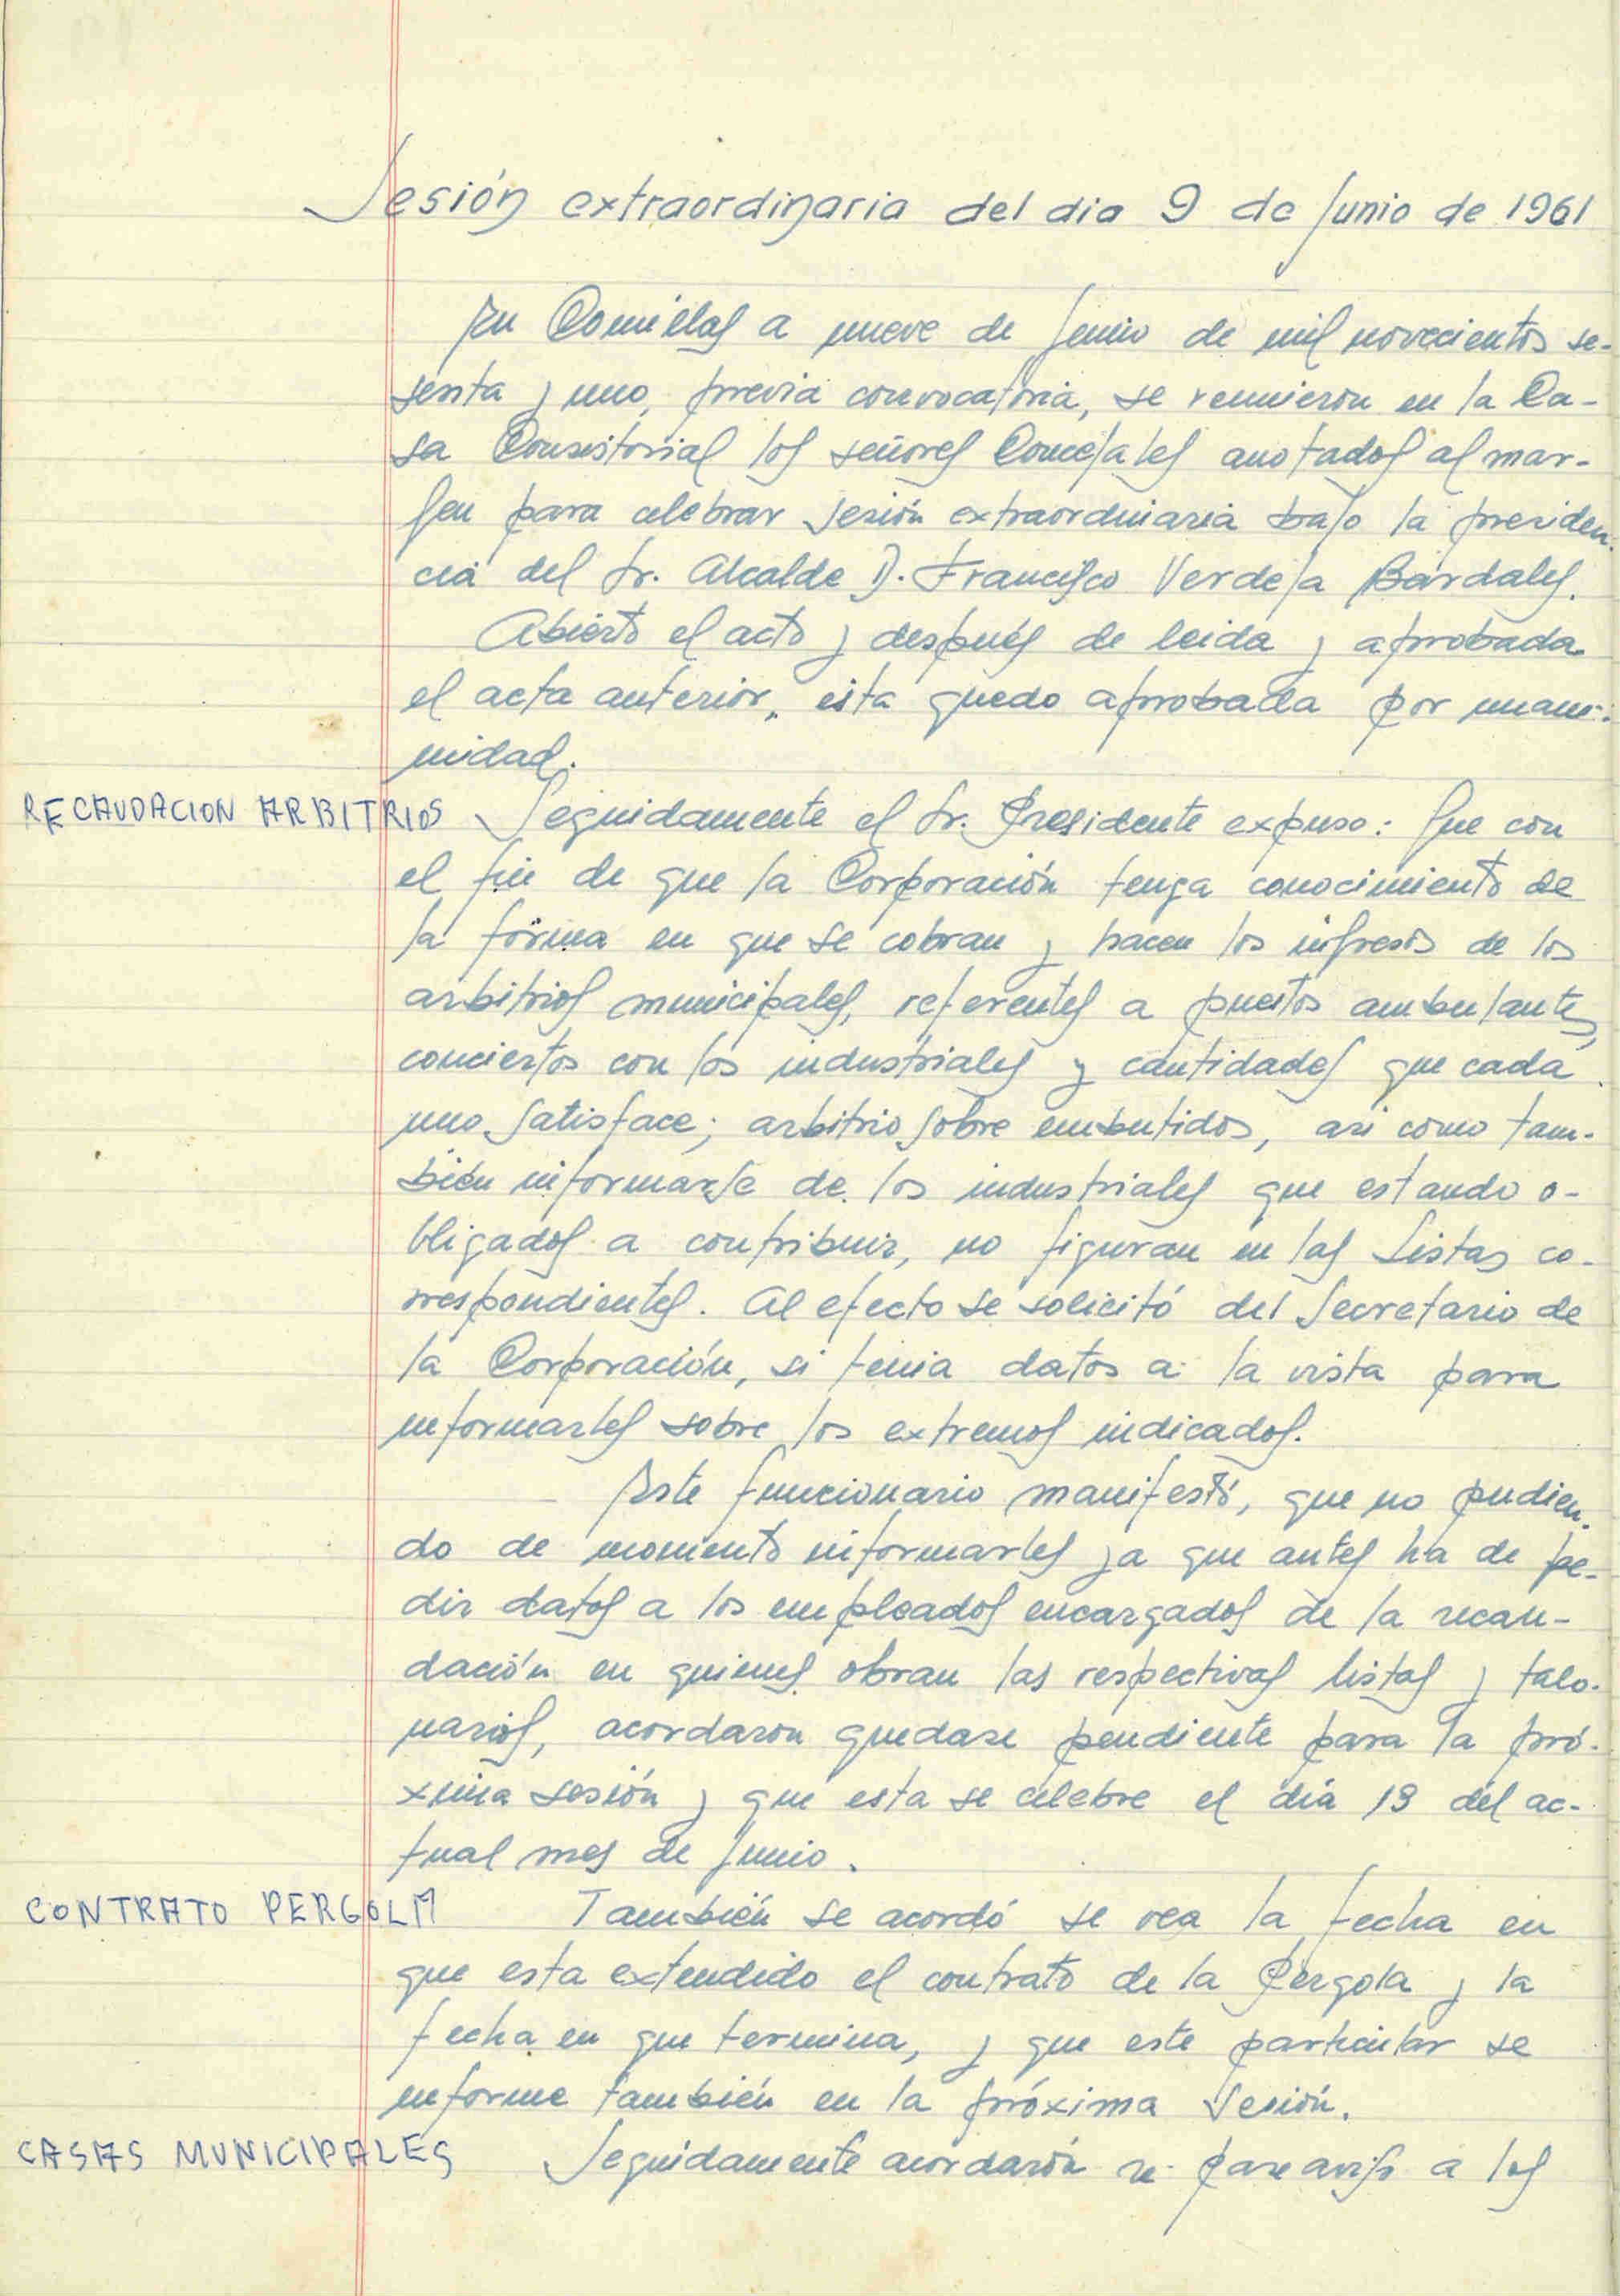 Sesión extraordinaria del dia 9 de Junio de 1961
En Comillas a nueve de Junio de mil novecientos se-
senta y uno, previa convocatoria, se reunieron en la Ca-
sa Consistorial los señores Concejales anotados al mar-
gen para celebrar sesión extraordinaria bajo la presiden-
cia del Sr. Alcalde D. Francisco Verdeja Bardales.
Abierto el acto y después de leida y aprobada
el acta anterior, esta quedo aprobada por unani-
midad.
RECAUDACION ARBITRIOS Seguidamente el Sr. Presidente expuso: Que con
el fin de que la Corporación tenga conocimiento de
la forma en que se cobran y hacen los ingresos de los
arbitrios municipales, referentes a puestos ambulantes,
conciertos con los industriales y cantidades que cada
uno satisface; arbitrio sobre embutidos, asi como tam-
bién informarse de los industriales que estando o-
bligados a contribuir, no figuran en las Listas co-
rrespondientes. Al efecto se solicitó del Secretario de
la Corporación, si tenia datos a la vista para
informarles sobre los extremos indicados.
Este funcionario manifestó, que no pudien-
do de momento informarles ya que antes ha de pe-
dir datos a los empleados encargados de la recau-
dación en quienes obran las respectivas listas y talo-
narios, acordaron quedase pendiente para la pró-
xima sesión y que esta se celebre el día 13 del ac-
tual mes de Junio.
CONTRATO PERGOLA También se acordó se vea la fecha en
que esta extendido el contrato de la Pergola y la
fecha en que termina, y que este particular se
informe también en la próxima Sesión.
CASAS MUNICIPALES Seguidamente acordarón se pase aviso a los